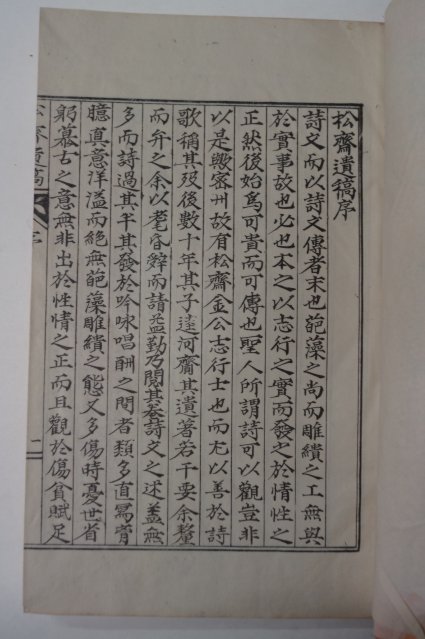 松齋遺稿序
詩文而以詩文傳者末也葩藻之尚而雕繢之工無與
於實事故也必也本之以志行之實而發之於情性之
正然後始爲可貴而可傳也聖人所謂詩可以觀豈非
以是歟密州故有松齋金公志行士也而尤以善於詩
歌稱其歿後數十年其子遠河齎其遺著若干要余釐
而弁之余以老昏辭而請益勤乃閱其卷詩文之述蓋無
多而詩過其半其發於吟咏唱酬之間者類多直寫胷
臆眞意洋溢而絶無葩藻雕繢之態又多傷時憂世省
躬慕古之意無非出於性情之正而且觀於傷貧賦足
松齋遺稿 序